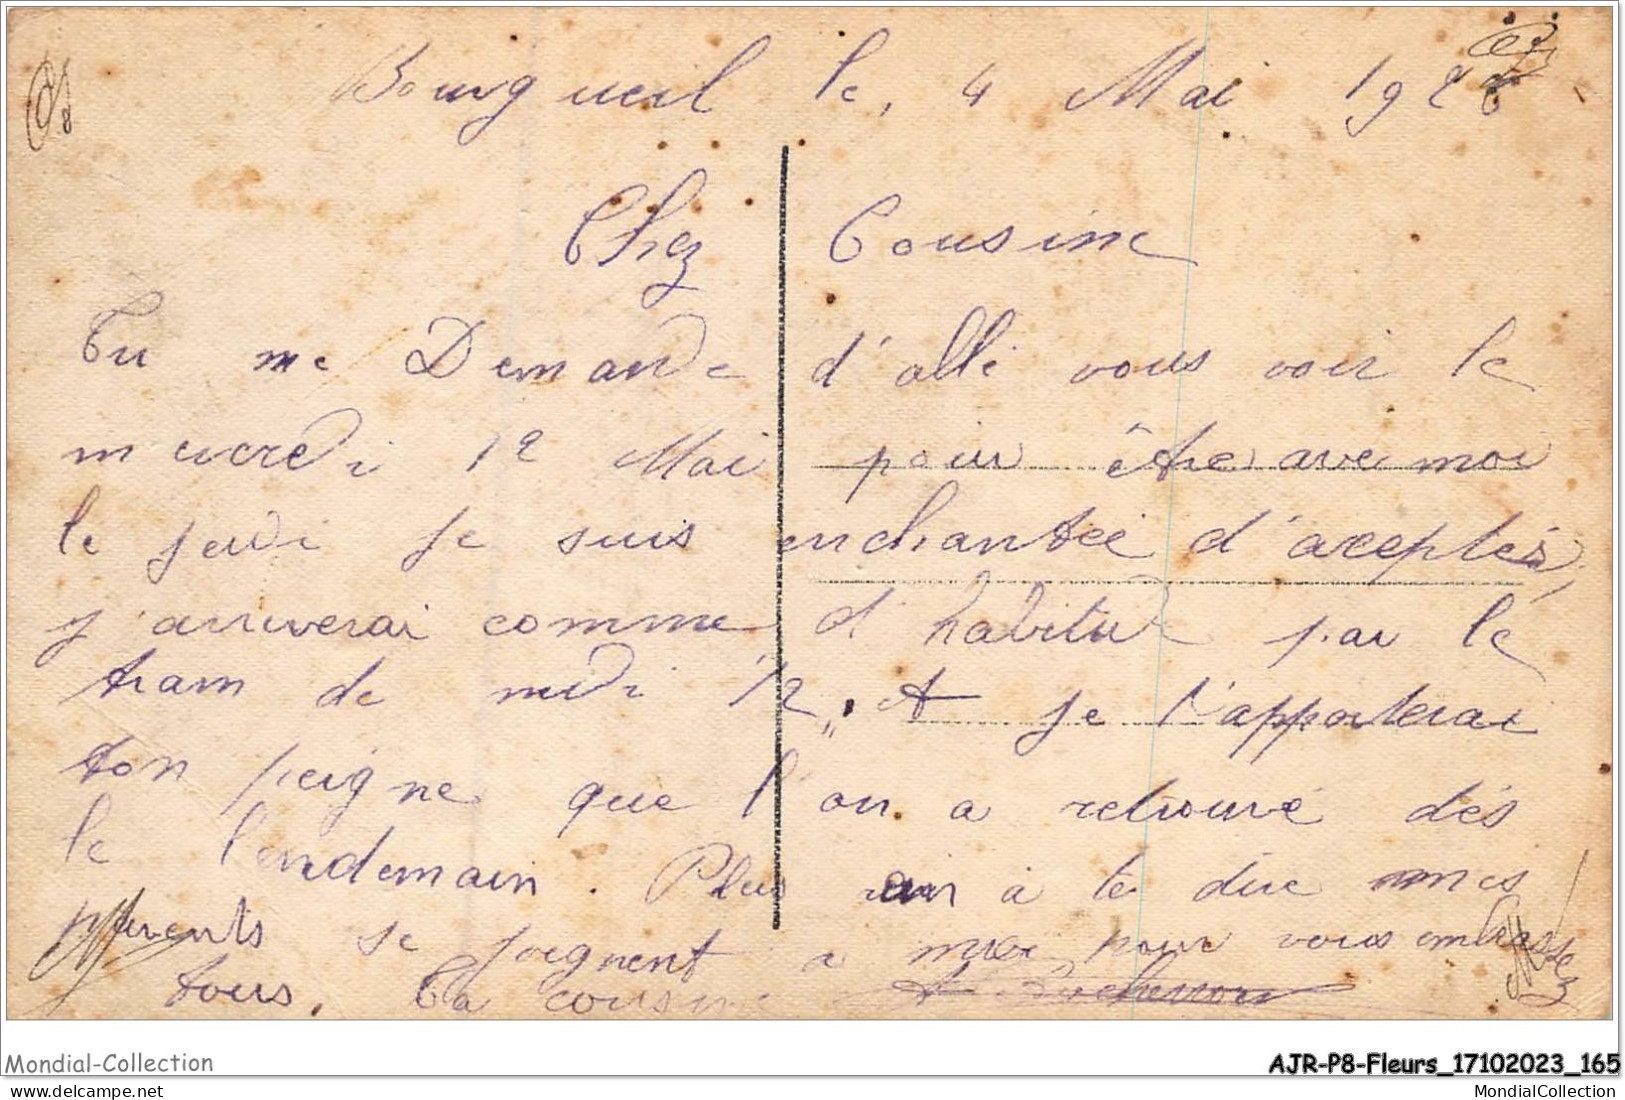 Bourgueil le, 4 Mai 192
Chez Cousine
Tu me Demande d'allé vous voir le
mercredi 12 Mai pour être avec moi
le jeudi je suis enchantée d'aceptés,
j'arriverai comme d'habitude par le
tram de midi 1/2. Et je t'apporterai
ton peigne que l'on a retrouvé dés
le lendemain. Plus rien à te dire mes
parents se joignent a moi pour vous embrassez
tous. Ta cousine
Mondial-Collection
AJR-P8-Fleurs_17102023_165
delcampe.net
MondialCollection